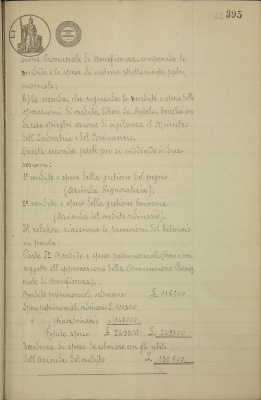 395
zione Provinciale di Beneficenza, contenendo le
rendite e le spese di natura strettamente patri_
moniale;
b) la seconda, che riguarda le rendite e spese delle
operazioni di credito, libera da tutela, benchè
l'Industria e del Commercio.
Questa seconda parte poi si suddivide in due
sezioni:
1° rendite e spese della gestione del pegno
(Azienda Pignoratizia);
2° rendite e spese della gestione bancaria
(Azienda del credito ordinario).
Il relatore riassume le previsioni del bilancio
in parola:
Parte Iª Rendite e spese patrimoniali
soggette all'approvazione della Commissione Provin_
ciale di Beneficenza).
Rendite patrimoniali ordinarie £
Spese patrimoniali ordinarie £
" straordinarie "
Totale spese £ 249300 £ 249300
Eccedenza di spese da colmare con gli utili
dell'Azienda del credito £